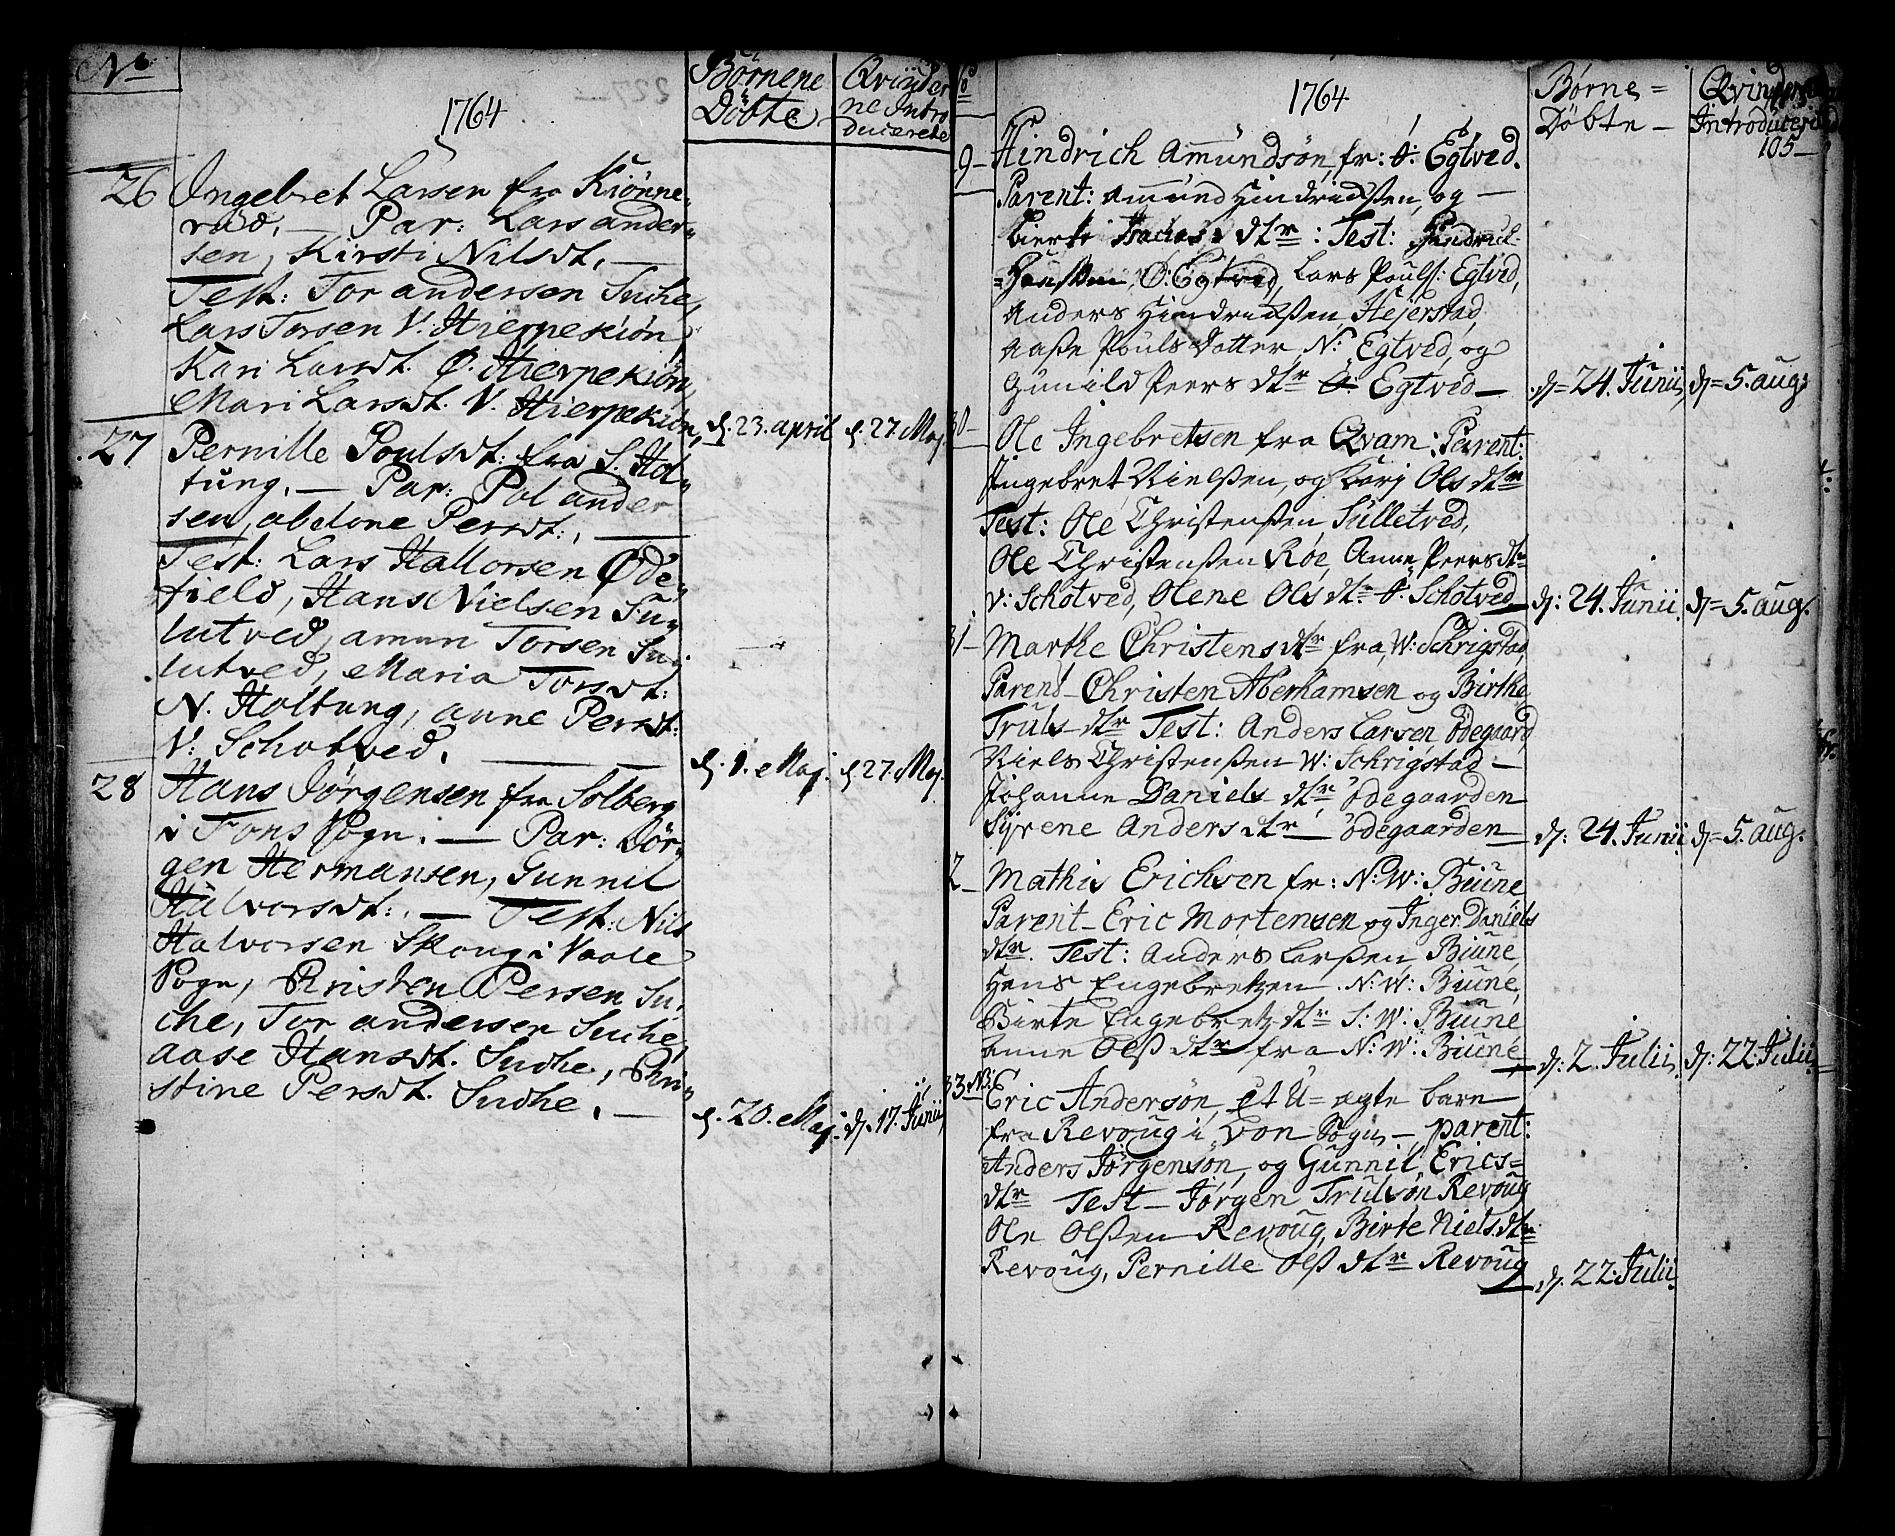 No
1764
Börnene
Döbte
Qvinder
ne Intro
ducerede
26 Ingebret Larsen fra Kiönne-
rud. — Par: Lars ander-
sen, Kirsti Nilsdt. —
Test: Tor andersen Suche,
Lars Torsen V: Hierpekiön,
Kari Larsdt. Ø. Hierpekiön,
Mari Larsdt. V. Hierpekiön, d. 23. april d. 27. Maj.
27 Pernille Poulsdt: fra S. Hol-
tung. — Par: Pol ander
sen, abelone Persdt:. —
Test: Lars Hallorsen Øde-
field, Hans Nielsen Su-
lutved, amun Torsen Su-
lutved, Maria Torsdt:
N. Holtung, anne Persdt:
V: Schotved. — d. 1. Maj. d. 27. Maj.
28 Hans Jörgensen fra Solberg
i Fons Sogn. — Par: Jör-
gen Hermansen, Gunnil
Halvorsdt:. — Test: Nils
Halvorsen Skoug i Vaale
Sogn, Christen Persen Su-
che, Tor andersen Suche,
aase Hansdt. Suche, Chri-
stine Persdt. Suche. — d. 20. Maj. d. 17. Junii,
1764
Børne =
Døbte —
Introducerede
105 —
9 — Hindrich Amundsøn, fr: Ø: Egtved.
Parent: Amund Hindrichsen, og —
Bierte dtr: Test: Hindrich
Hansen, Ø: Egtved, Lars Pouls: Egtved,
Anders Hindrichsen, Hejerstad,
Aase Pouls Datter, N: Egtved, og
Gunild Peers dtr Ø: Egtved — d= 24. Junii, d= 5. aug:
30 — Ole Ingebretsen fra Qvam: Parent:
Ingebret Nielsen, og Karj Ols dtr
Test: Ole Christensen, Sulletved,
Ole Christensen Røe, Anne Peers dtr
V: Schotved, Olene Ols dtr Ø: Schotved d: 24. Junii. d= 5. aug.
31 — Marthe Christens dtr fra, W: Schrigstad,
Parent — Christen Aberhamsen og Birthe
Truls dtr Test: Anders Larsen Ödegaard
Niels Christensen W: Schrigstad —
Johanne Daniels dtr Ödegaarden
Syrene Anders dtr — Ödegaarden — d: 24. Junii d= 5. aug.
2 — Mathis Erichsen fr: N: W: Biune
Parent — Eric Mortensen og Inger Daniels
dtr. Test: Anders Larsen Biune,
Hans Engebretzen. N: W: Biune,
Birte Engebretz dtr S: W: Biune
Anne Olss dtr fra N: W: Biune, d: 2. Julii, d: 22. Julii.
33 NB: Eric Andersøn, et U= agte barn
fra Revoug i Von Sogn —, parent:
Anders Jørgensøn, og Gunnil, Erics=
dtr Test — Jørgen Trulsøn Revoug
Ole Olssen Revoug, Birte Niels dtr
Revoug, Pernille Olss dtr Revoug d. 22. Julii.